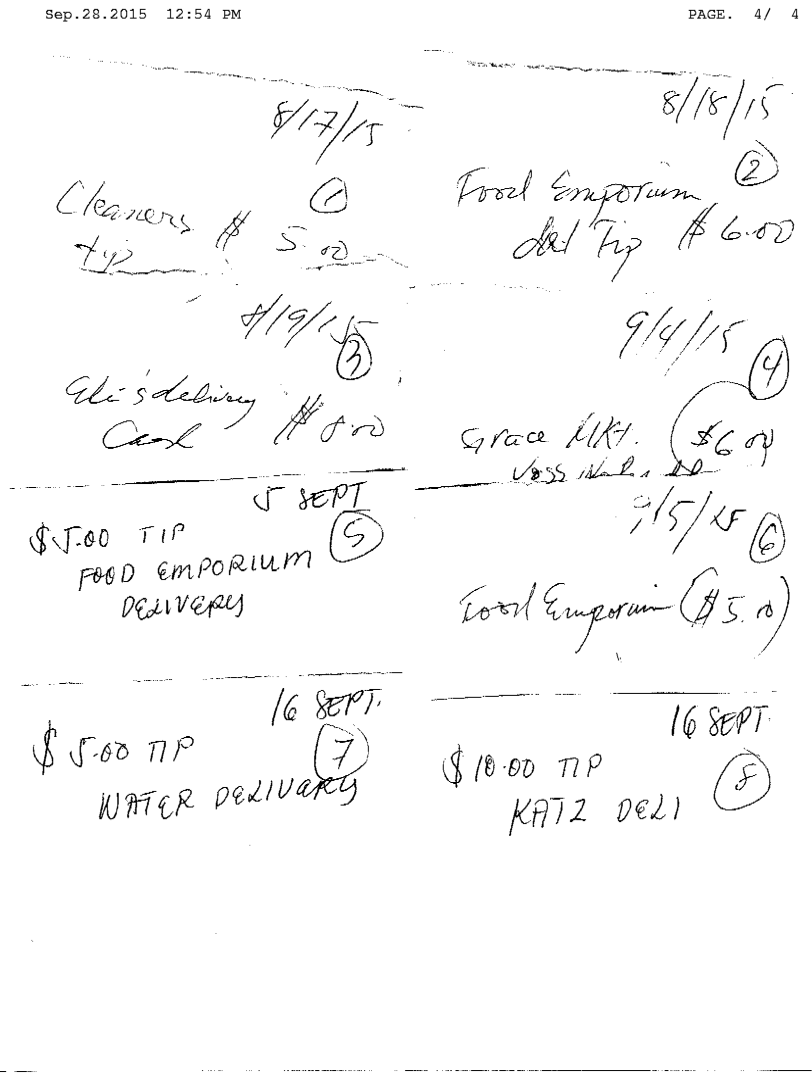 Sep.28.2015 12:54 PM PAGE. 4/ 4
8/17/15
1
Cleaners $ 5.00
tip
8/18/15
2
Food Emporium
del Tip $ 6.00
8/19/15
3
Eli's delivery $ 8.00
Cash
9/4/15
4
Grace MKt. $6.00
5 SEPT
5
$5.00 TIP
FOOD EMPORIUM
DELIVERY
9/5/15
6
Food Emporium ($5.00)
16 SEPT.
7
$5.00 TIP
WATER DELIVERY
16 SEPT.
8
$10.00 TIP
KATZ DELI